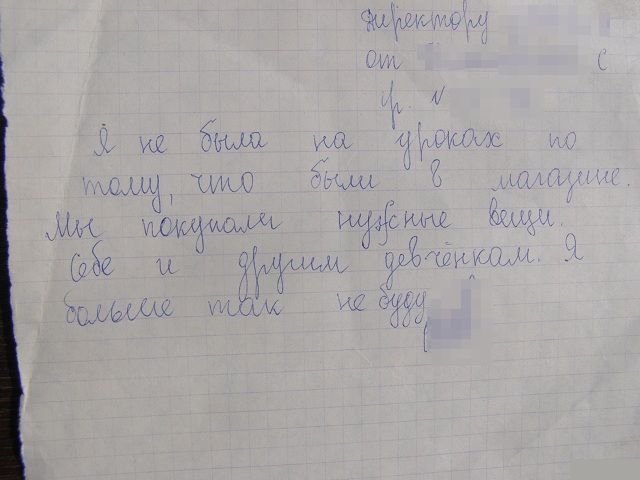 директору
от с
гр. N
Я не была на уроках по
тому, что были в магазине.
Мы покупали нужные вещи.
Себе и другим девчёнкам. Я
больше так не буду